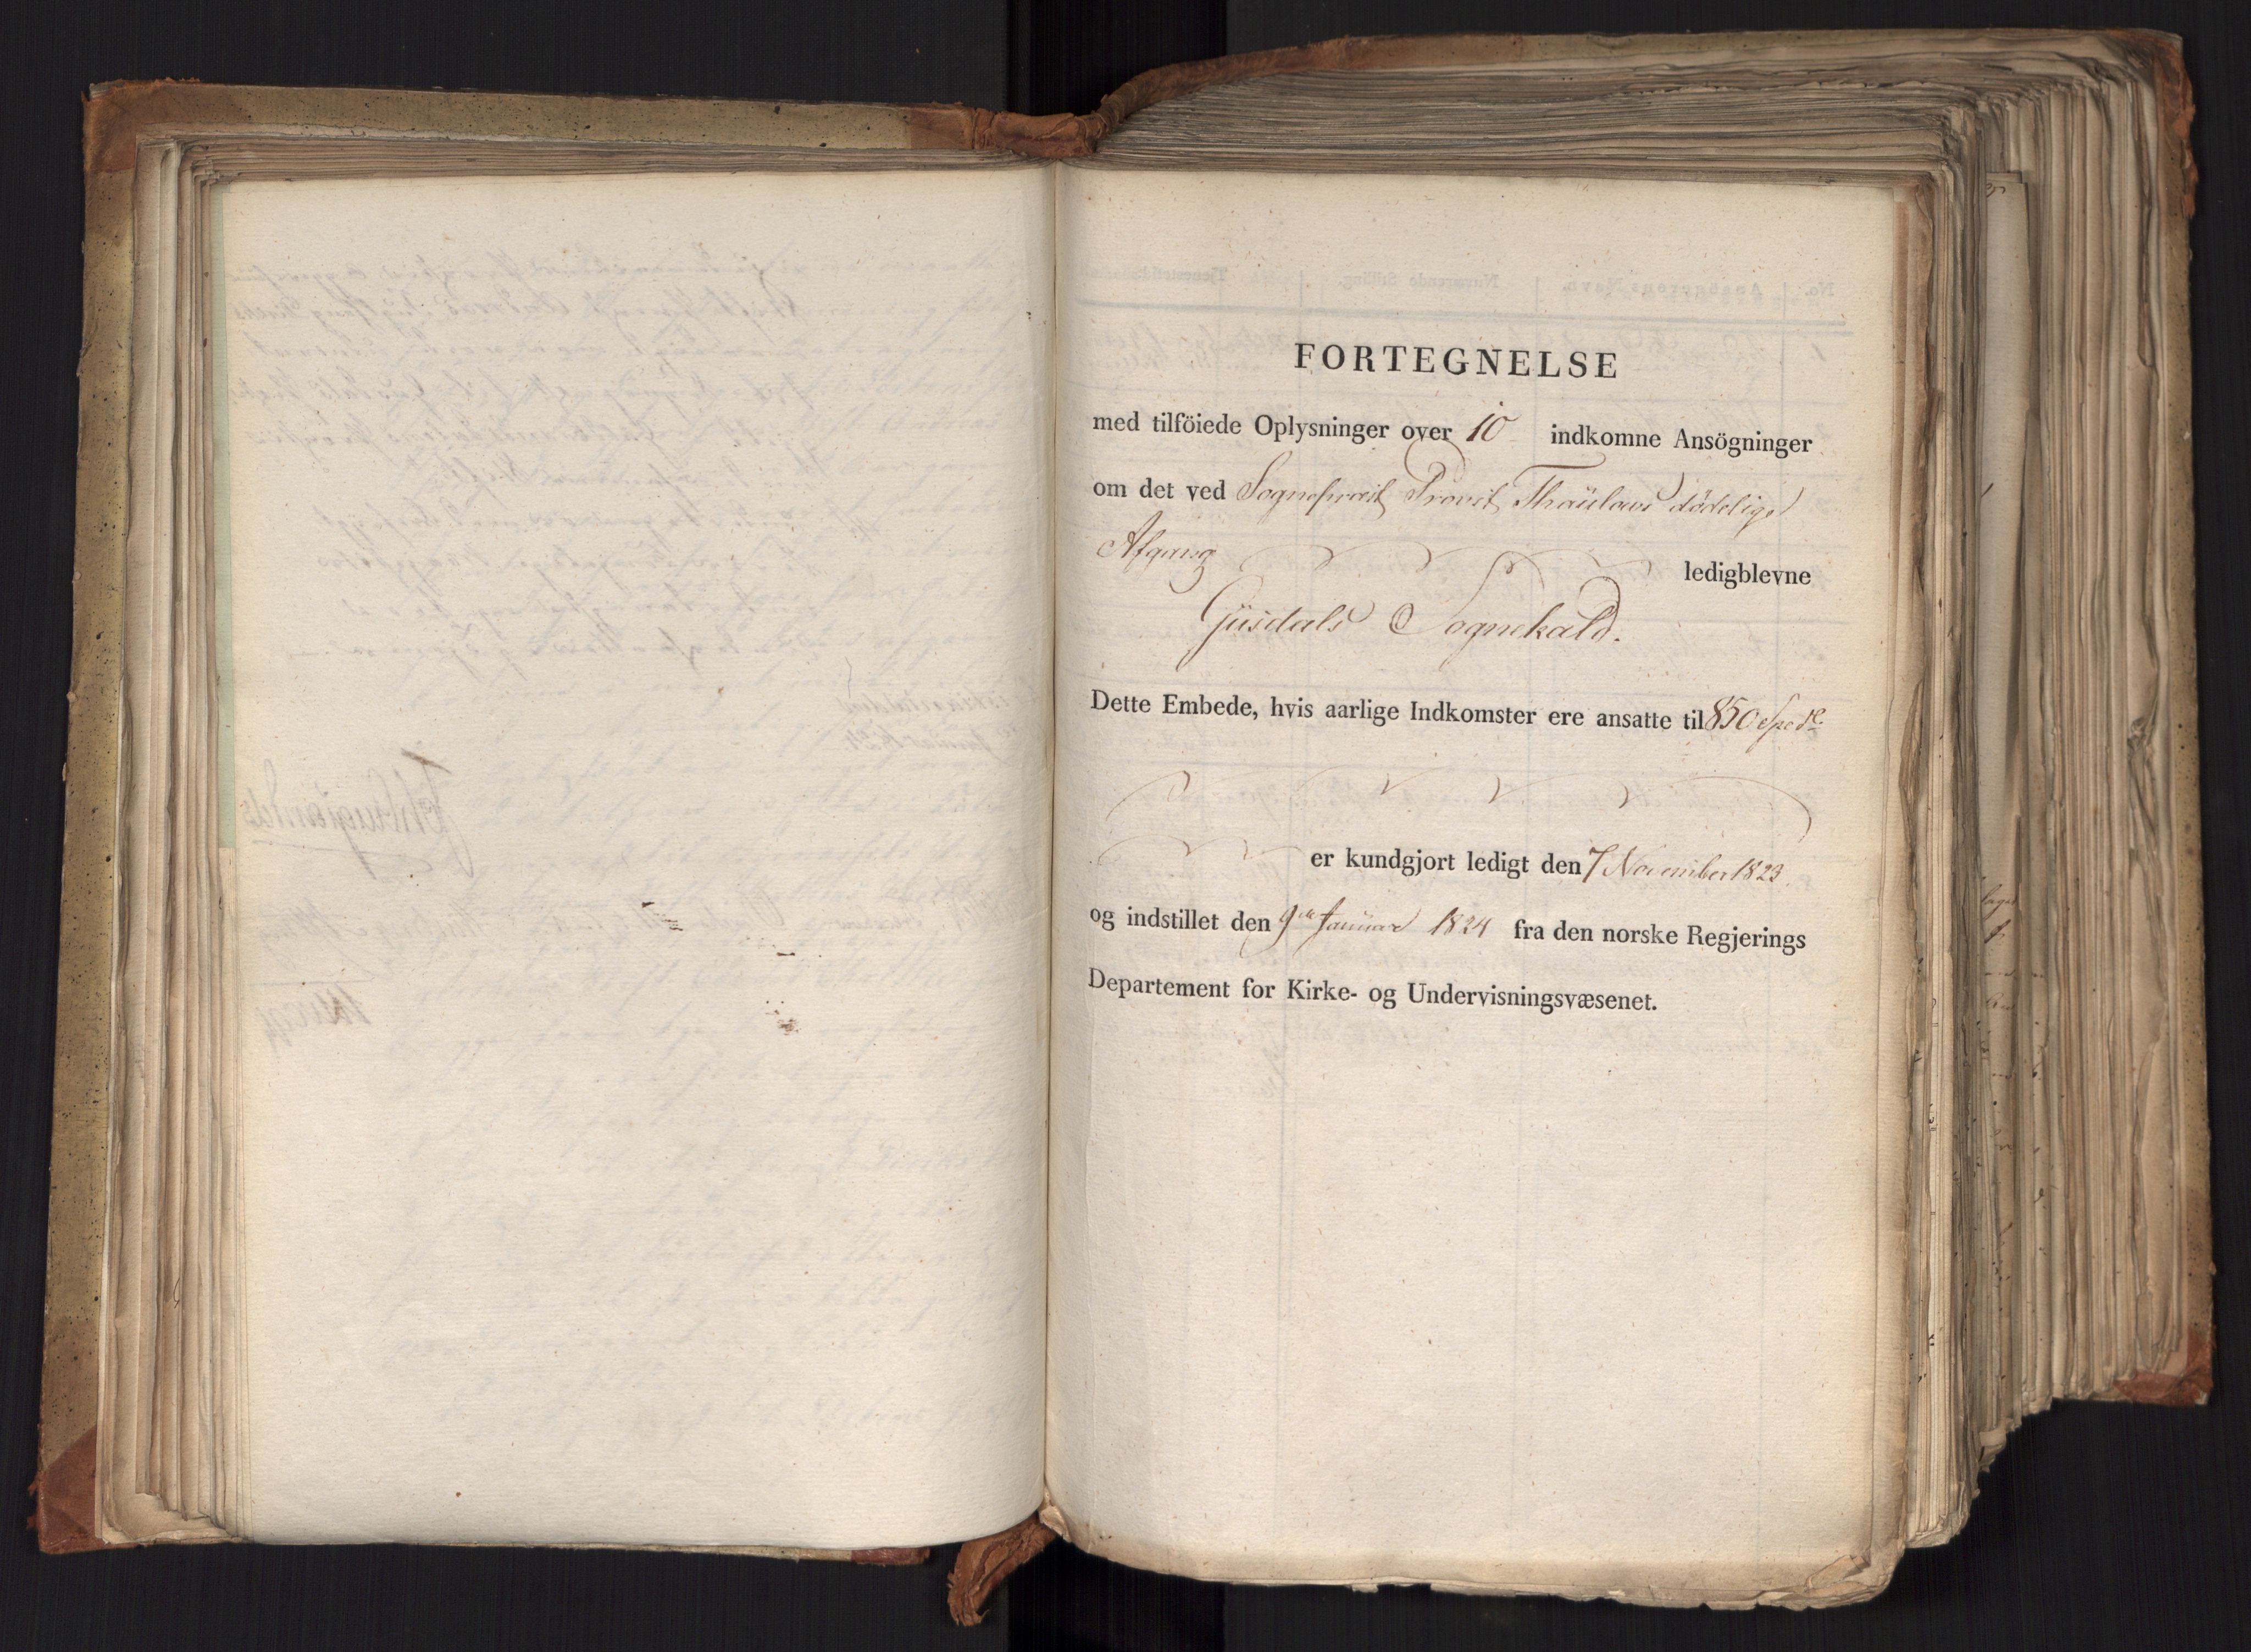 FORTEGNELSE
med tilföiede Oplysninger over 10 indkomne Ansögninger
om det ved Sognepræst Provst Thaulows dödelige
Afgang ledigblevne
Gusdals Sognekald.
Dette Embede, hvis aarlige Indkomster ere ansatte til 850 Spd
er kundgjort ledigt den 7 November 1823
og indstillet den 9de Januar 1824 fra den norske Regjerings
Departement for Kirke- og Undervisningsvæsenet.